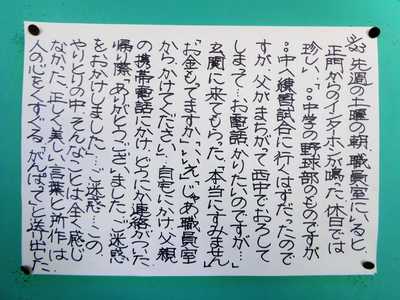 先週の土曜の朝、職員室にいると、
正門からのインターホンが鳴った。休日では
珍しい。「○○中学の野球部のものですが
○○中へ練習試合に行くはずだったので
すが、父がまちがて西中でおろして
しまえて…お電話かりたいのですが…」
玄関に来てもらった。「本当にすみません」
「お金もてますか」「いいえ」「じゃあ職員室
からかけてください」自宅にかけ、父親
の携帯電話にかけ、どうにか連絡がついた
帰り際、ありがとうございました。ご迷惑
をおかけしました…。ご迷惑…この
やりとりの中、そんなことは全く感じ
なかった。正しく美しい言葉と所作は
人の心をくすぐる。「がんばって」と送り出した